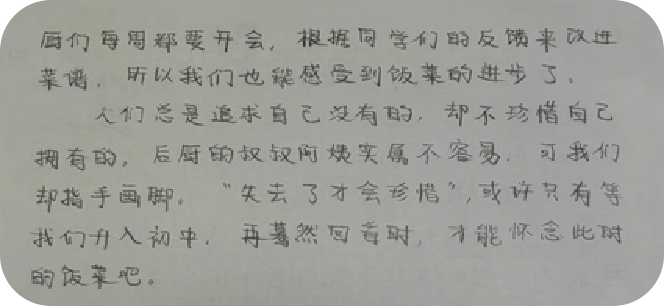 厨们每周都要开会，根据同学们的反馈来改进
菜谱，所以我们也能感受到饭菜的进步了。
人们总是追求自己没有的，却不珍惜自己
拥有的，后厨的叔叔阿姨实属不容易，可我们
却指手画脚。“失去了才会珍惜”，或许只有等
我们升入初中，再蓦然回首时，才能怀念此时
的饭菜吧。